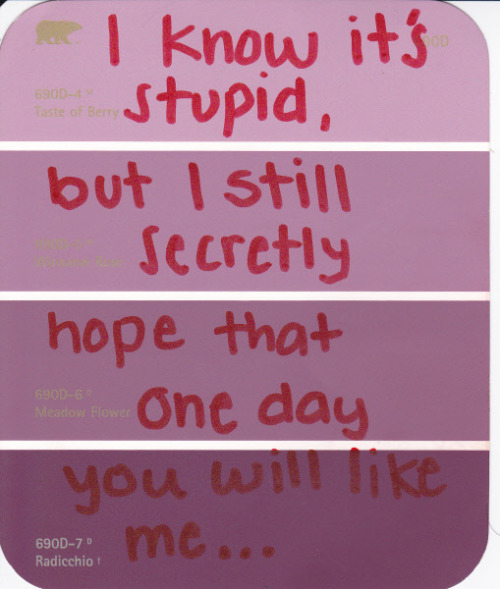 I know it's
90D
690D-4 H
Taste of Berry
stupid,
but I still
secretly
hope that
690D-6 D
Meadow Flower
one day
you will like
me...
690D-7 D
Radicchio f